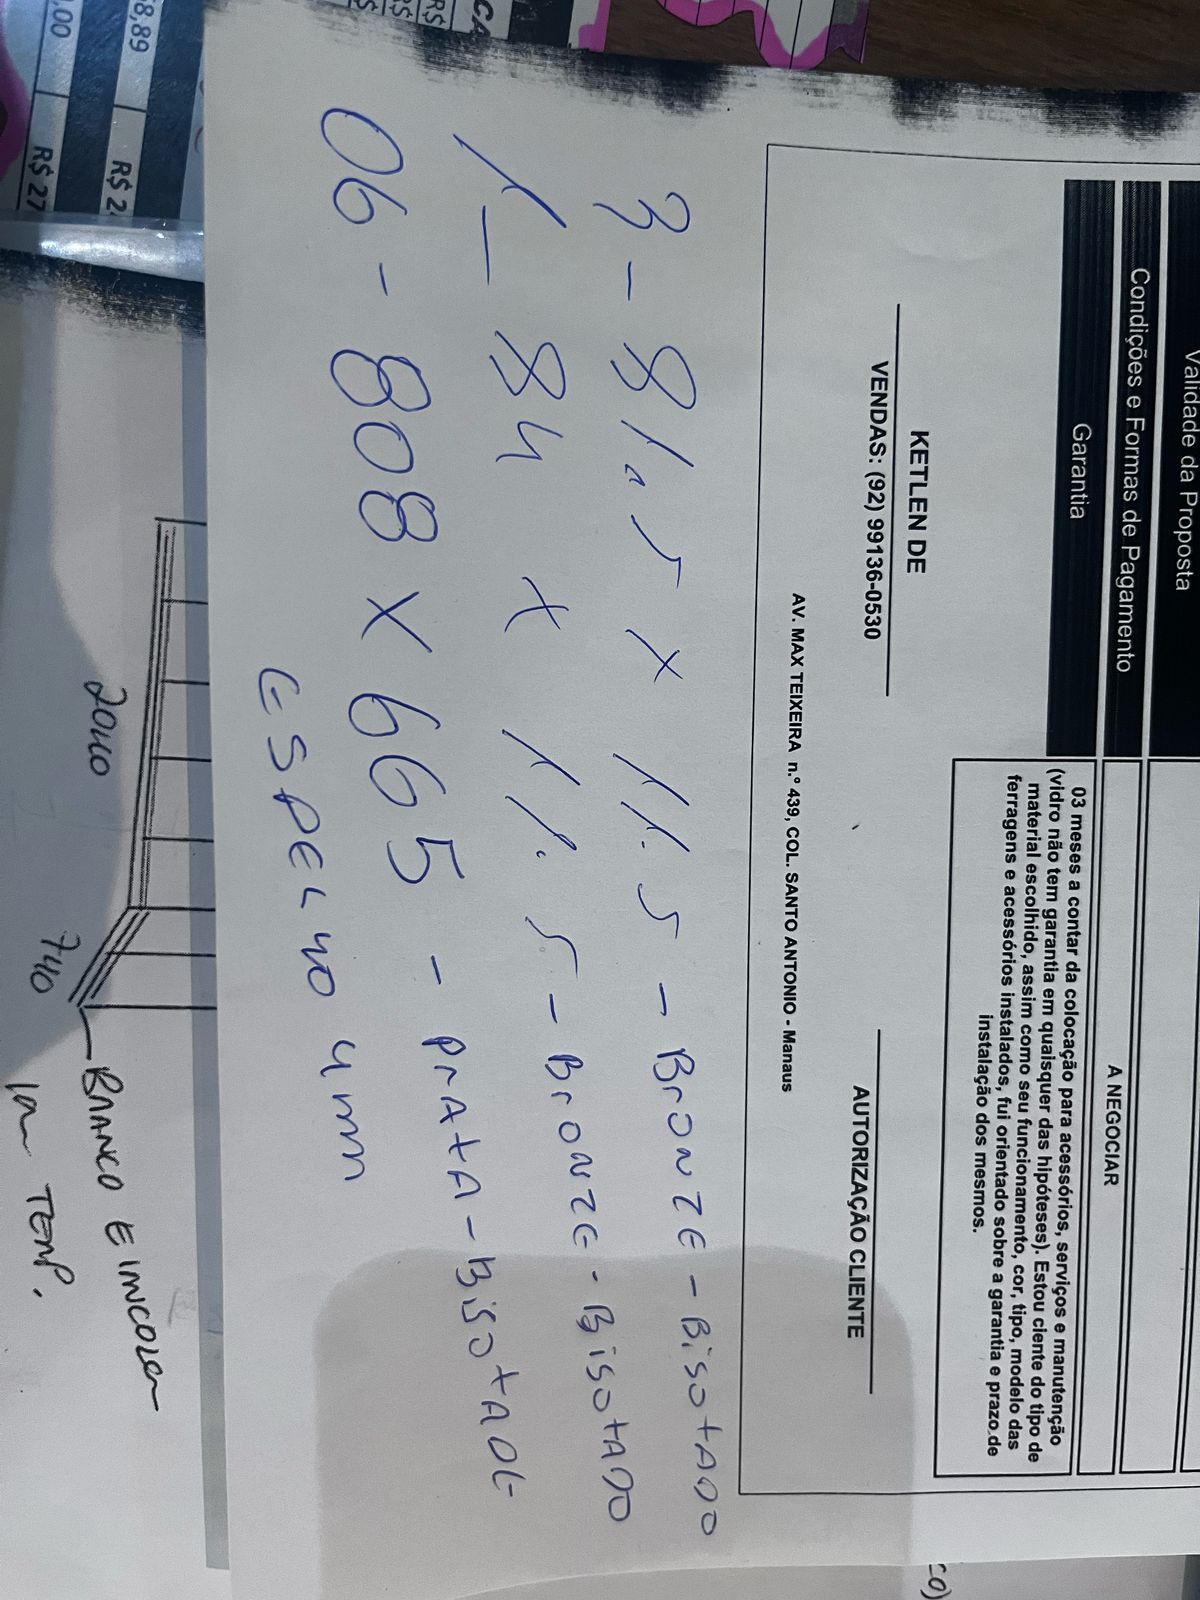 Validade da Proposta
Condições e Formas de Pagamento
A NEGOCIAR
Garantia
03 meses a contar da colocação para acessórios, serviços e manutenção
(vidro não tem garantia em quaisquer das hipóteses). Estou ciente do tipo de
material escolhido, assim como seu funcionamento, cor, tipo, modelo das
ferragens e acessórios instalados, fui orientado sobre a garantia e prazo de
instalação dos mesmos.
KETLEN DE
VENDAS: (92) 99136-0530
AUTORIZAÇÃO CLIENTE
AV. MAX TEIXEIRA n.º 439, COL. SANTO ANTONIO - Manaus
3 - 81.5 x 11.5 - BronzE - BisotADO
1 - 84 x 11.5 - BronzE - BisotADO
06 - 808 x 665 - PrAtA - BisotADO
ESPELHO 4mm
2040
740
BRANCO E INCOLOR
TEMP.
R$ 2
R$ 27
8,89
,00
CA
R$
R$